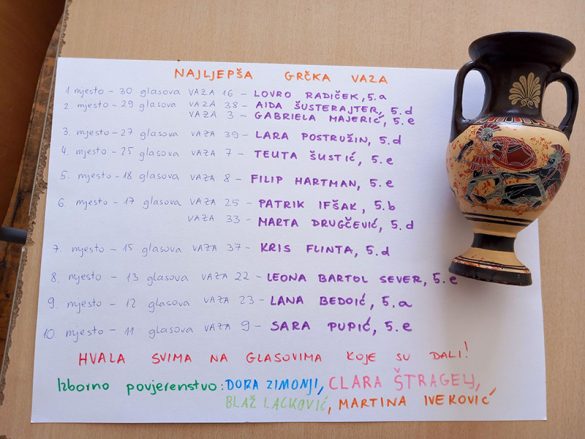 NAJLJEPŠA GRČKA VAZA
1. mjesto - 30 glasova VAZA 16 - LOVRO RADIČEK, 5.a
2. mjesto - 29 glasova VAZA 38 - AIDA ŠUSTERAJTER, 5.d
VAZA 3 - GABRIELA MAJERIĆ, 5.e
3. mjesto - 27 glasova VAZA 39 - LARA POSTRUŽIN, 5.d
4. mjesto - 25 glasova VAZA 7 - TEUTA ŠUSTIĆ, 5.e
5. mjesto - 18 glasova VAZA 8 - FILIP HARTMAN, 5.e
6. mjesto - 17 glasova VAZA 25 - PATRIK IFŠAK, 5.b
VAZA 33 - MARTA DRUGČEVIĆ, 5.d
7. mjesto - 15 glasova VAZA 37 - KRIS FLINTA, 5.d
8. mjesto - 13 glasova VAZA 22 - LEONA BARTOL SEVER, 5.e
9. mjesto - 12 glasova VAZA 23 - LANA BEDOIĆ, 5.a
10. mjesto - 11 glasova VAZA 9 - SARA PUPIĆ, 5.e
HVALA SVIMA NA GLASOVIMA KOJE SU DALI!
Izborno povjerenstvo: DORA ZIMONJI, CLARA ŠTRAGELJ,
BLAŽ LACKOVIĆ, MARTINA IVEKOVIĆ